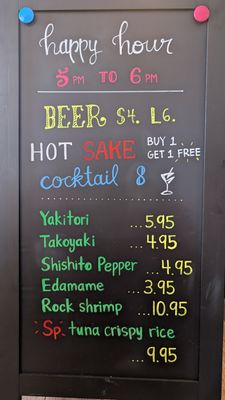 happy hour
5 PM TO 6 PM
BEER S4. L6.
HOT SAKE BUY 1 GET 1 FREE
cocktail 8
Yakitori ...5.95
Takoyaki ...4.95
Shishito Pepper ...4.95
Edamame ...3.95
Rock shrimp ...10.95
Sp. tuna crispy rice
...9.95